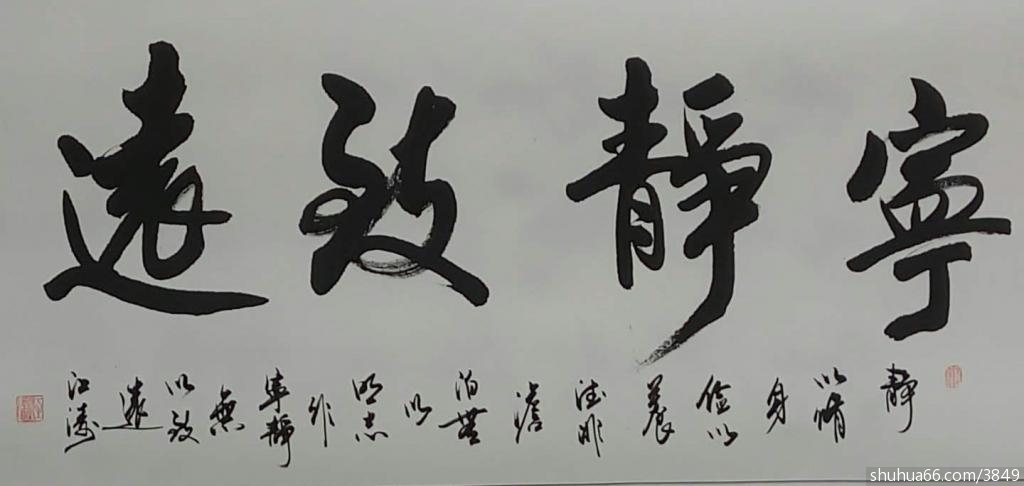 寧靜致遠
靜
以脩
身
儉以
養
德非
澹
泊無
以
明志
非
寧靜
無
以致
遠
江濤
shuhua66.com/3849